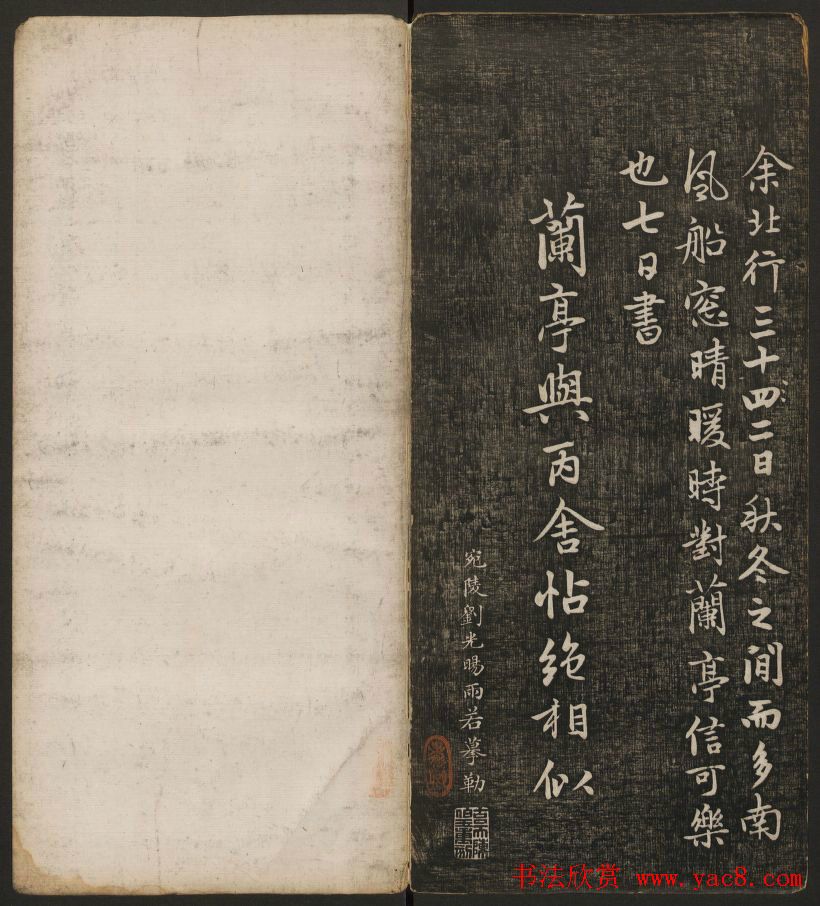 余北行三十四二日秋冬之間而多南
风船窓晴暖時對蘭亭信可樂
也七日書
蘭亭與丙舍帖絶相似
宛陵劉光暘雨若摹勒
书法欣赏 www.yac8.com